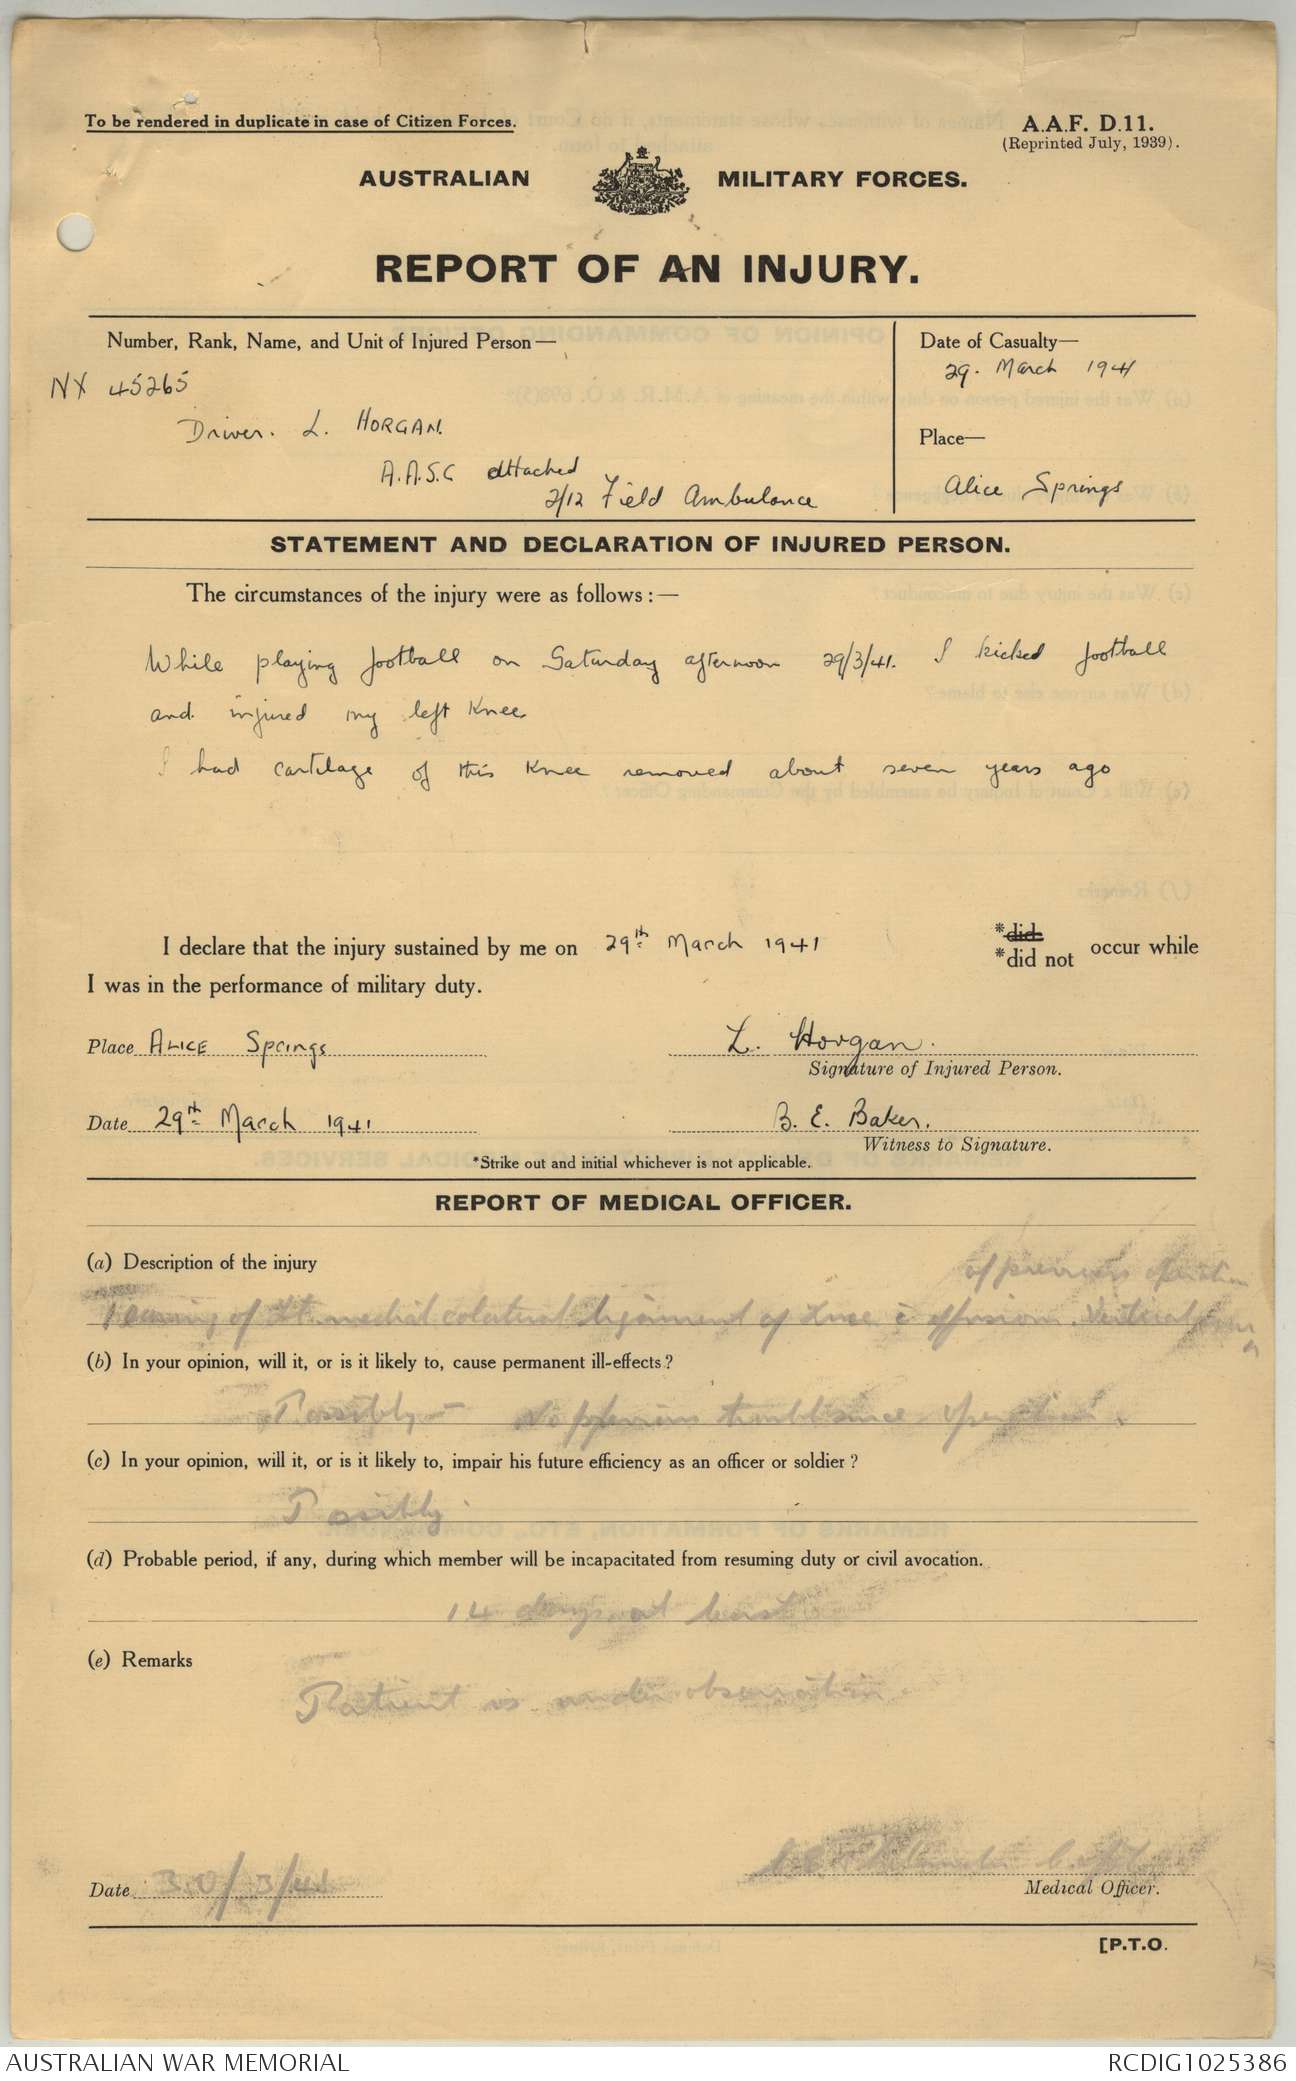 To be rendered in duplicate in case of Citizen Forces.
A.A.F. D.11.
(Reprinted July, 1939).
AUSTRALIAN MILITARY FORCES.
REPORT OF AN INJURY.
Number, Rank, Name, and Unit of Injured Person—
NX 45265
Driver. L. HORGAN.
A.A.S.C attached
2/12 Field Ambulance
Date of Casualty—
29. March 1941
Place—
Alice Springs
STATEMENT AND DECLARATION OF INJURED PERSON.
The circumstances of the injury were as follows:—
While playing football on Saturday afternoon 29/3/41. I kicked football
and injured my left knee
I had cartilage of this knee removed about seven years ago
I declare that the injury sustained by me on 29th March 1941 *did *did not occur while
I was in the performance of military duty.
Place ALICE Springs
L. Horgan.
Signature of Injured Person.
Date 29th March 1941
B. E. Baker.
Witness to Signature.
*Strike out and initial whichever is not applicable.
REPORT OF MEDICAL OFFICER.
(a) Description of the injury
of previous operation
Tearing of Lt. medial colateral ligament of knee c effusion. Vertical
(b) In your opinion, will it, or is it likely to, cause permanent ill-effects?
Possibly — No previous trouble since operation.
(c) In your opinion, will it, or is it likely to, impair his future efficiency as an officer or soldier?
Possibly.
(d) Probable period, if any, during which member will be incapacitated from resuming duty or civil avocation.
14 days at least
(e) Remarks
Patient is under observation.
Date 30/3/41
Medical Officer.
[P.T.O.
AUSTRALIAN WAR MEMORIAL
RCDIG1025386